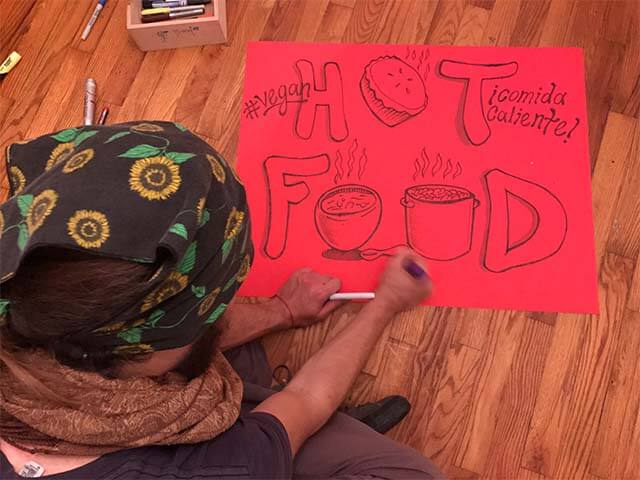 #vegan HOT ¡comida
caliente!
FOOD